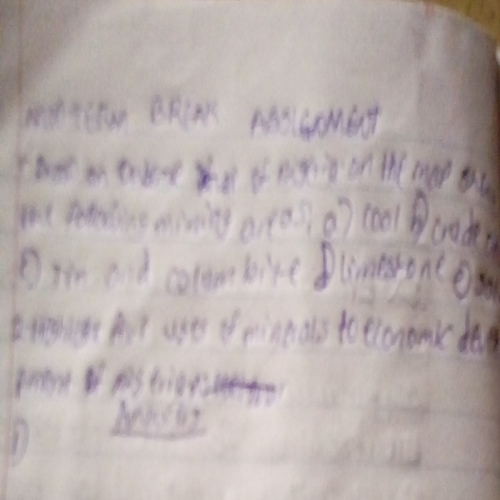 MIDTERM BREAK ASSIGNMENT
on outline of nigeria on the map
the following mining areas, a) coal b) crude
c) Tin and columbite d) limestone e)
five uses of minerals to economic
of nigeria
Answer
1)